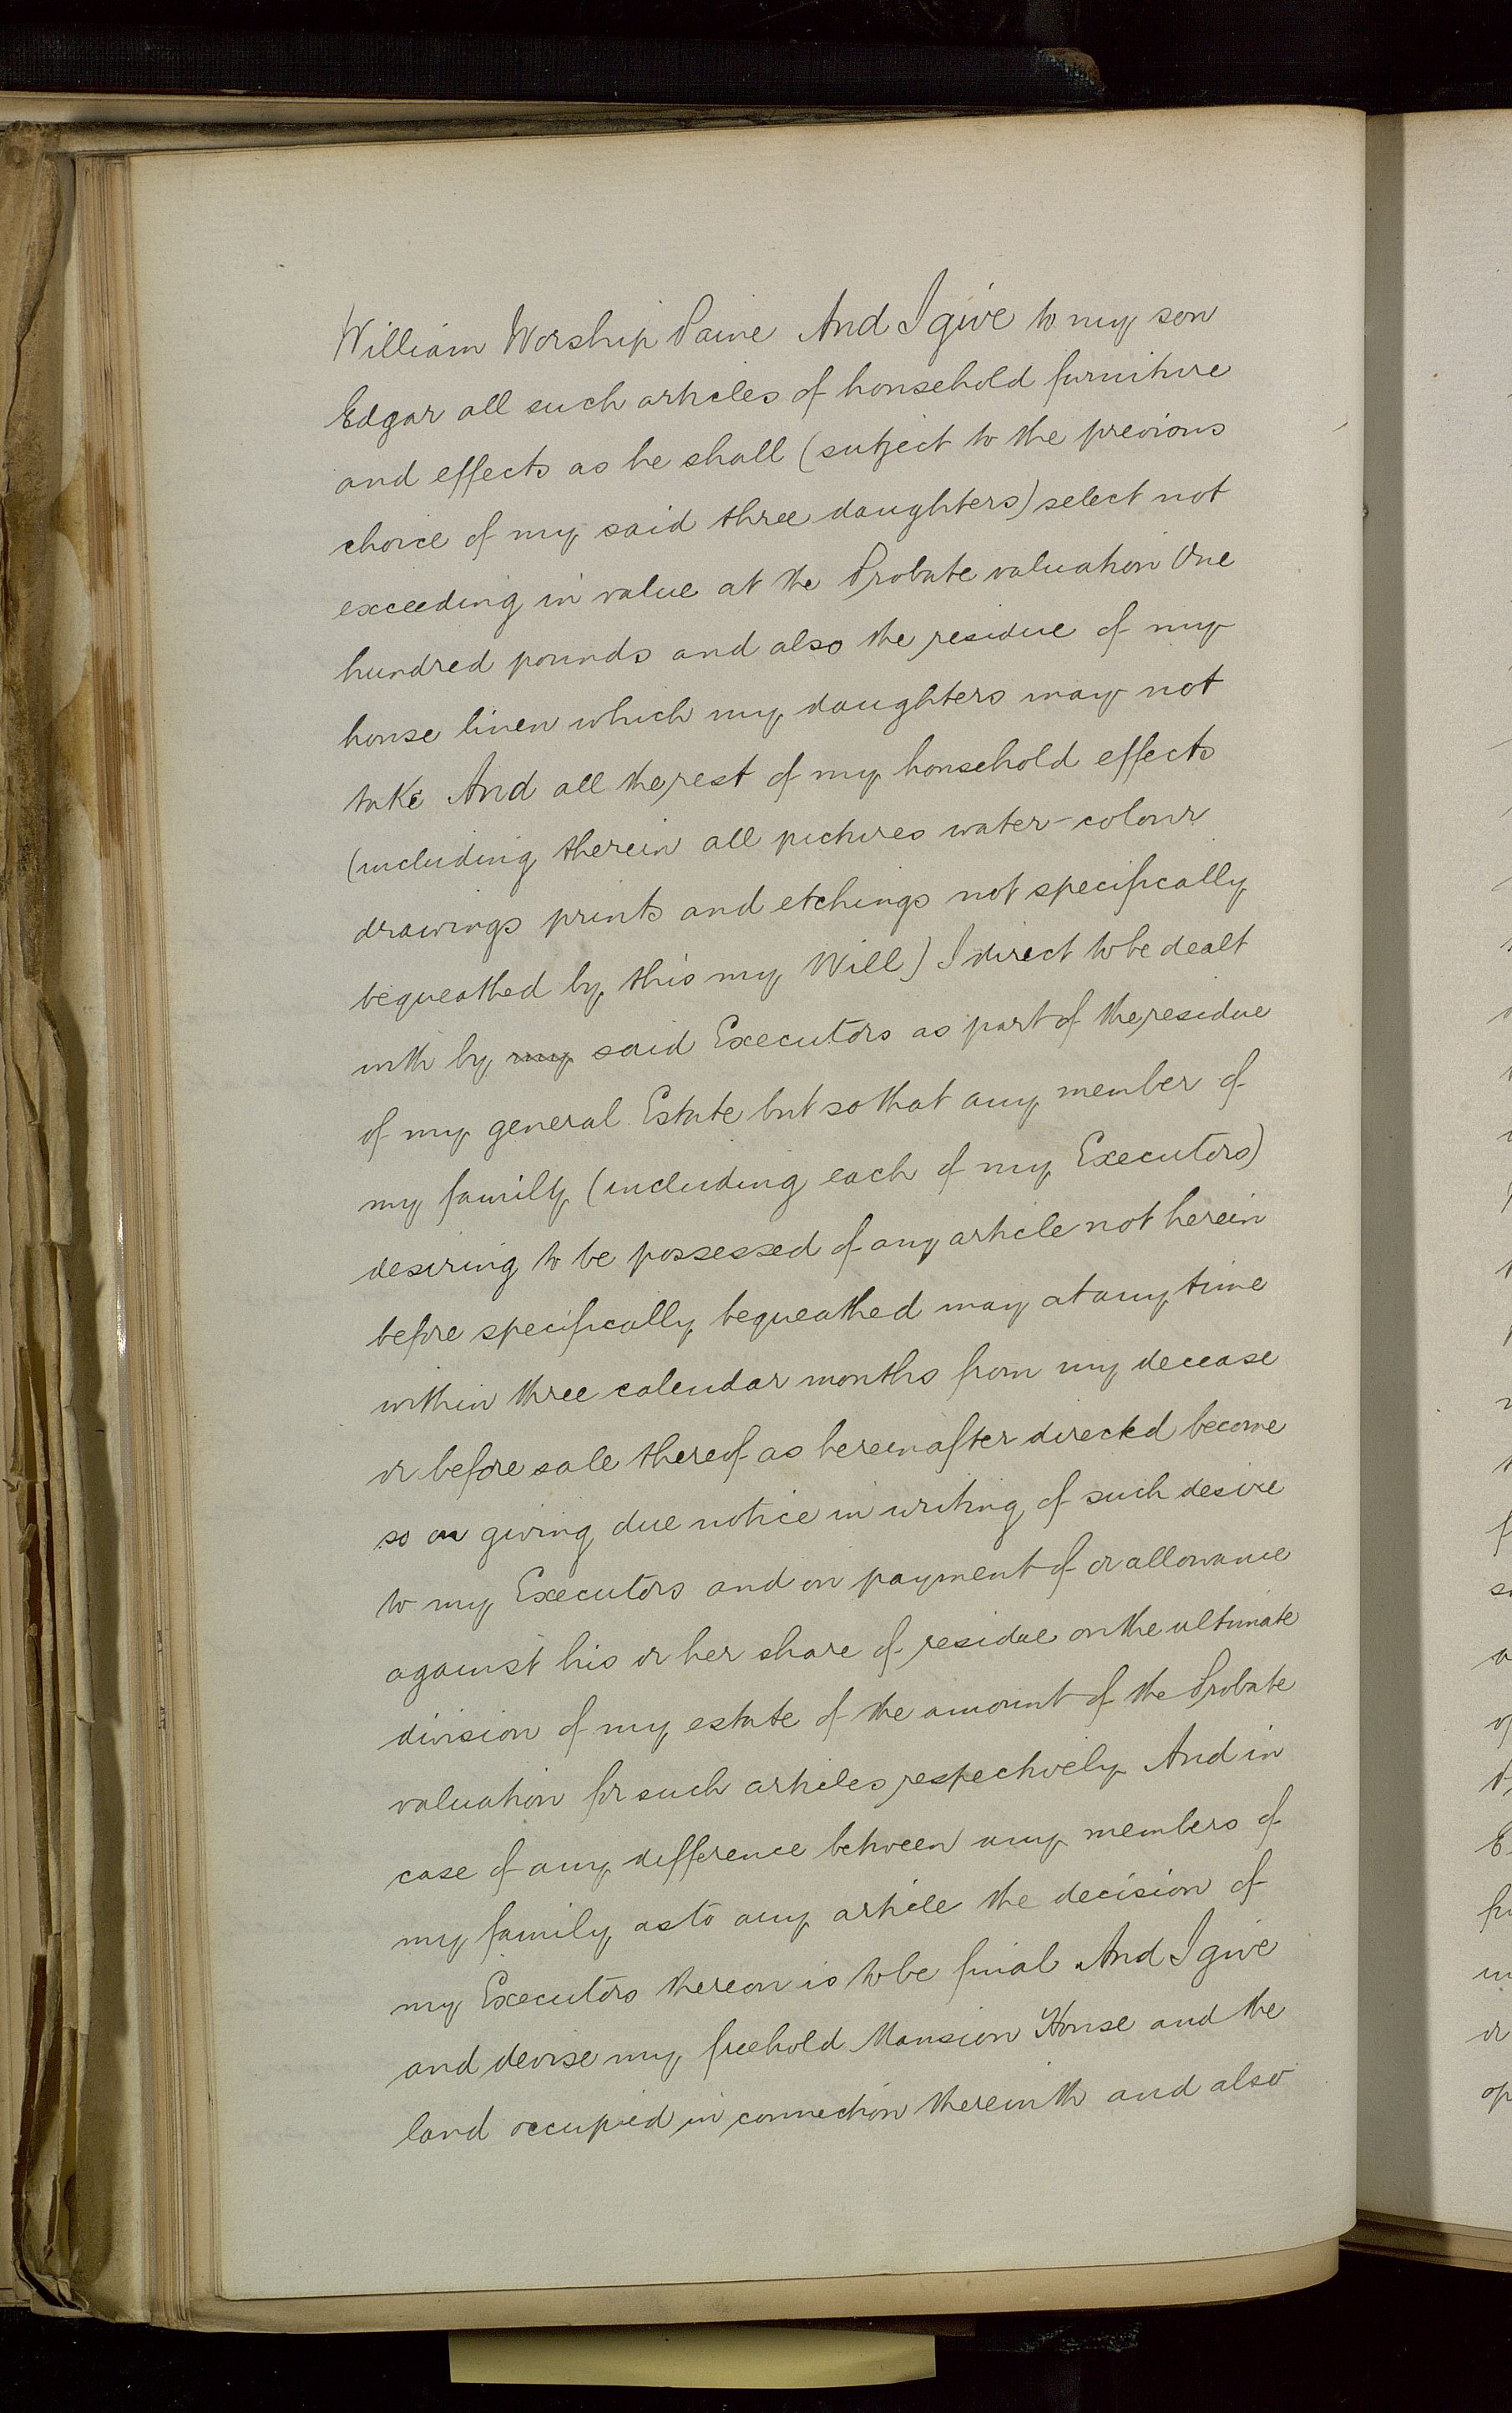 William Worship Paine And I give to my son
Edgar all such articles of household furniture
and effects as he shall (subject to the previous
choice of my said three daughters) select not
exceeding in value at the Probate valuation One
hundred pounds and also the residue of my
house linen which my daughters may not
take And all the rest of my household effects
(including therein all pictures water-colour
drawings prints and etchings not specifically
bequeathed by this my Will) I direct to be dealt
with by my said Executors as part of the residue
of my general Estate but so that any member of
my family (including each of my Executors)
desiring to be possessed of any article not herein
before specifically bequeathed may at any time
within three calendar months from my decease
or before sale thereof as hereinafter directed become
so on giving due notice in writing of such desire
to my Executors and on payment of or allowance
against his or her share of residue on the ultimate
division of my estate of the amount of the Probate
valuation for such articles respectively And in
case of any difference between any members of
my family as to any article the decision of
my Executors thereon is to be final And I give
and devise my freehold Mansion House and the
land occupied in connection therewith and also